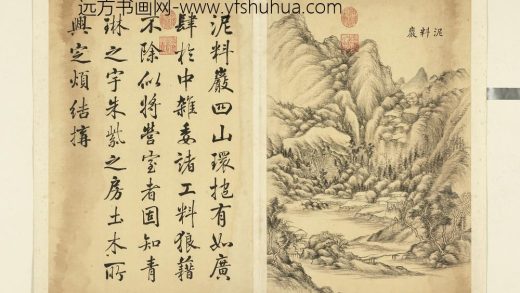 远方书画网-www.yfshuhua.com
泥料巖
泥料巖四山環抱有如廣
肆於中雜委諸工料狼藉
不除似將營室者固知青
琳之宇朱紫之房土木所
興定煩結搆